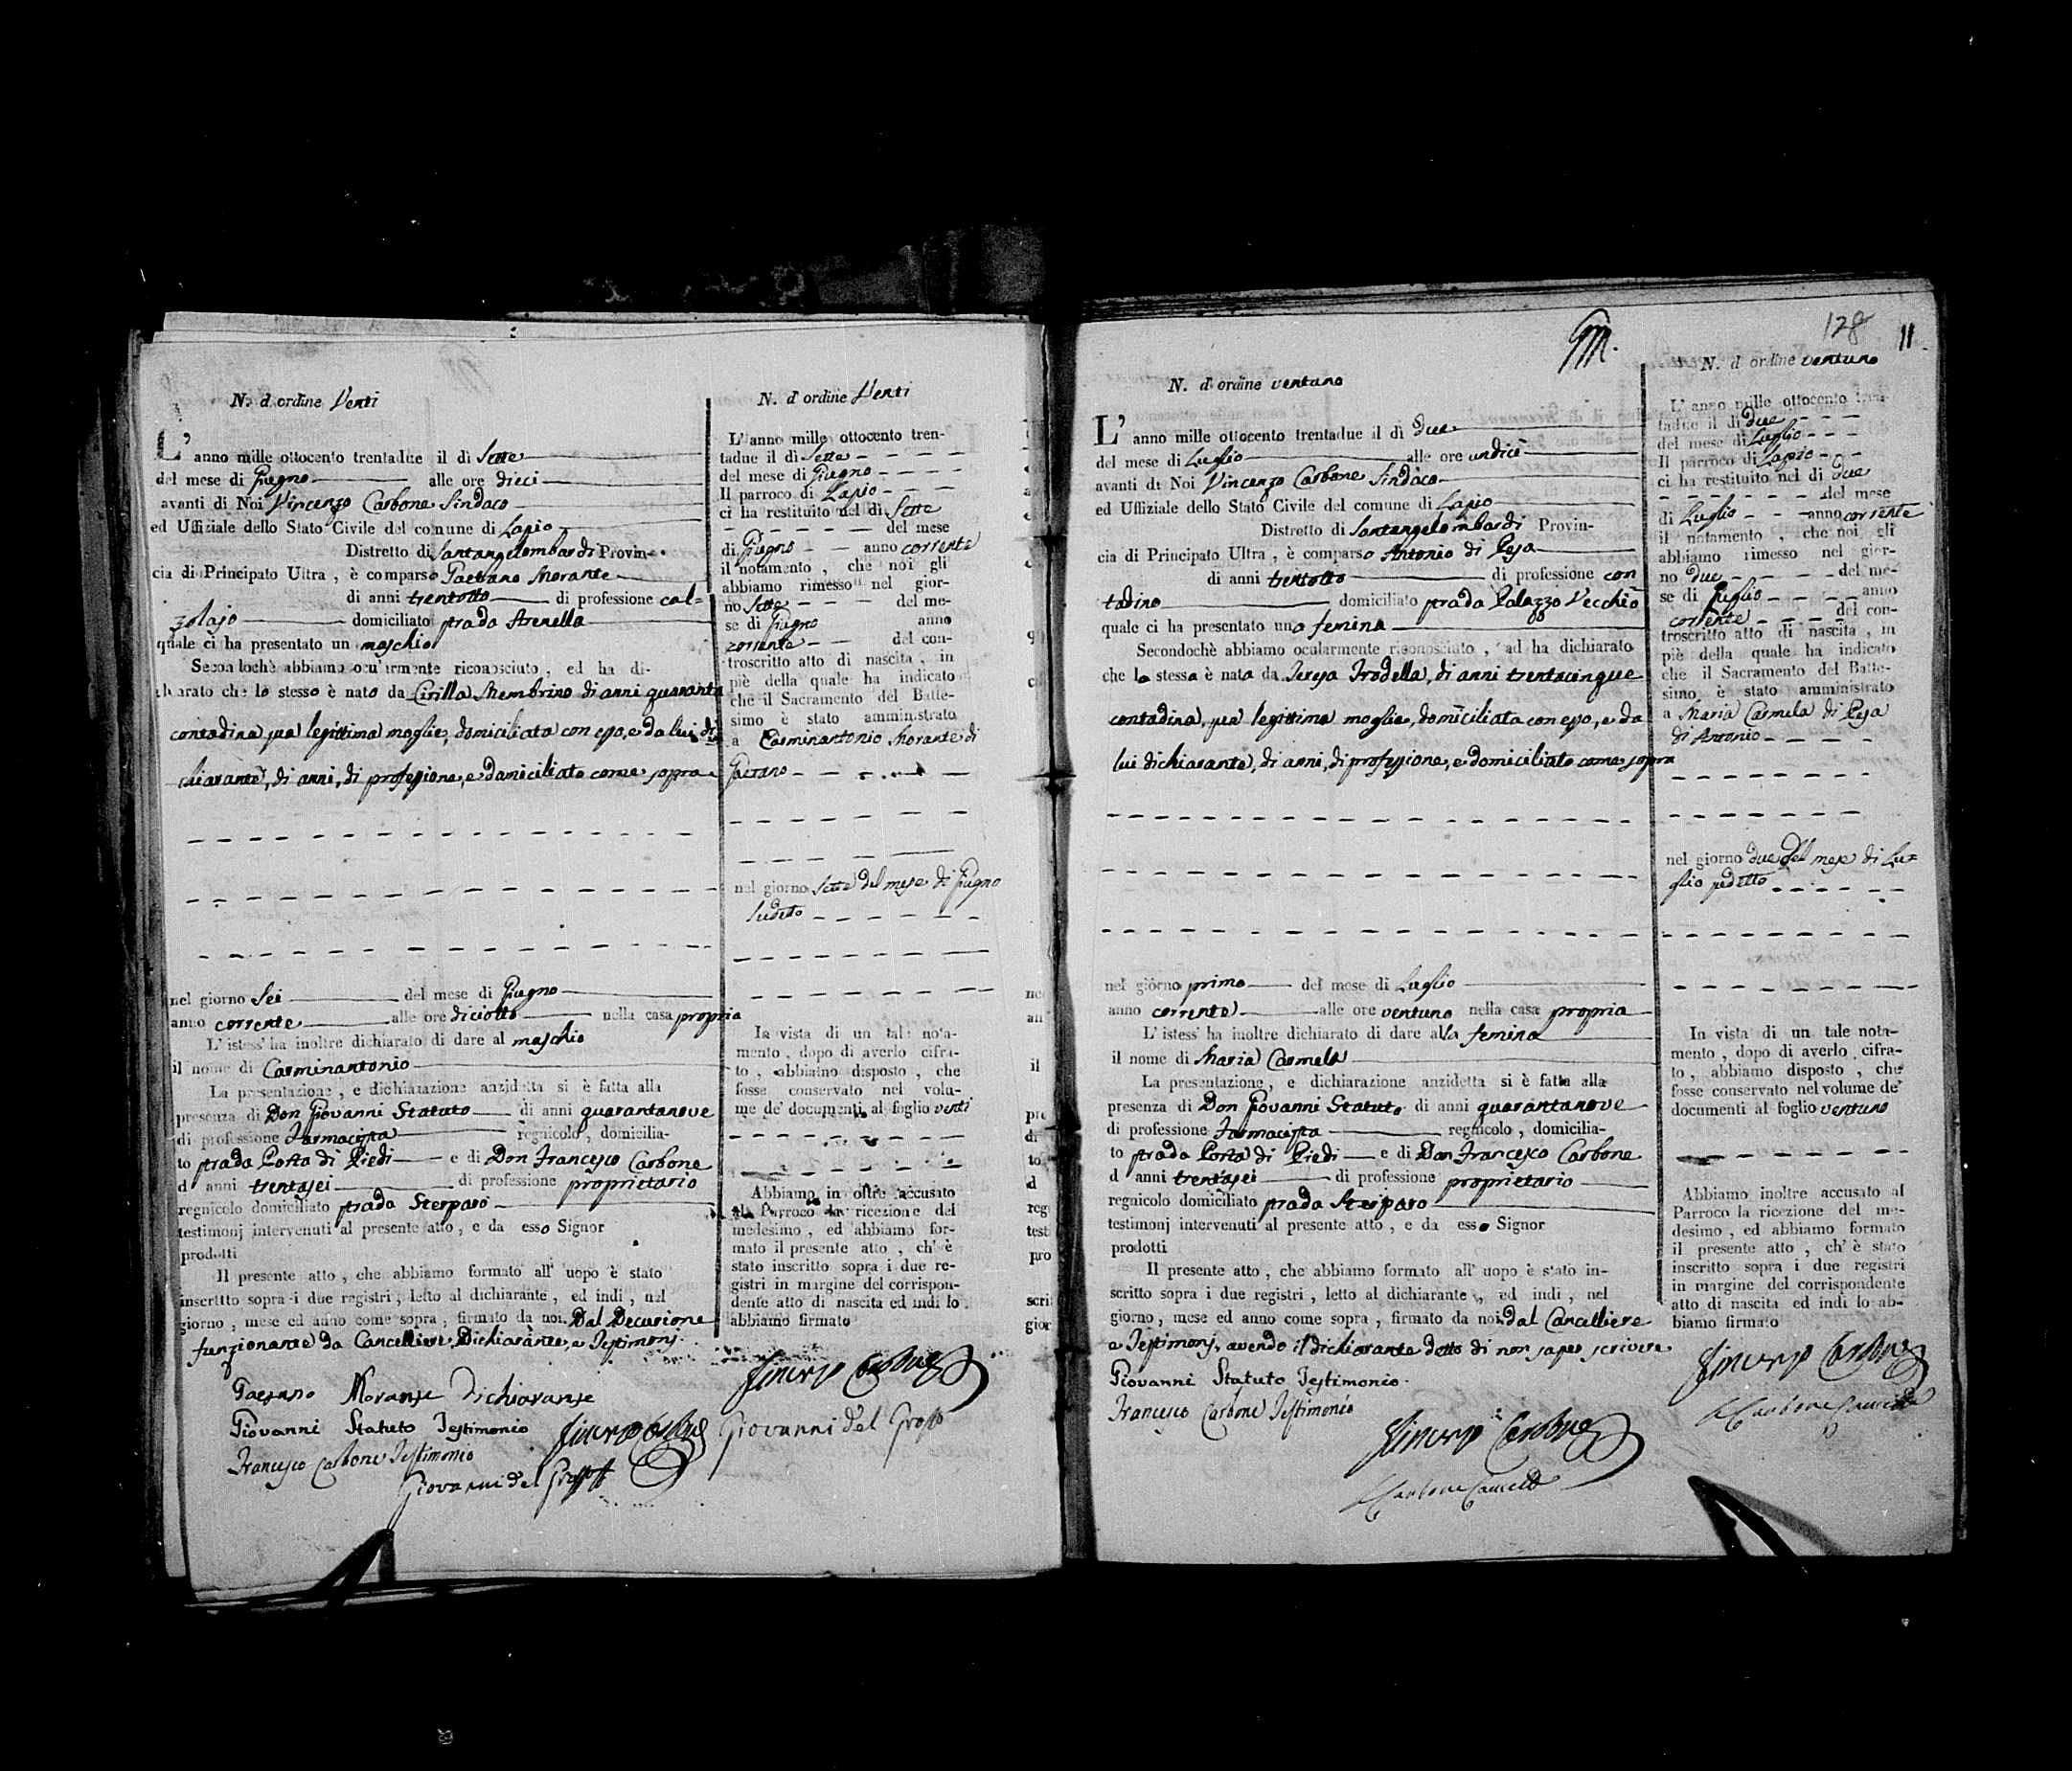 N. d'ordine Venti
L'anno mille ottocento trentadue il dì Sette
del mese di Giugno alle ore dieci
avanti di Noi Vincenzo Carbone Sindaco
ed Uffiziale dello Stato Civile del comune di Lapio
Distretto di Santangelombardi Provin-
cia di Principato Ultra, è comparso Gaetano Morante
di anni trentotto di professione cal=
zolajo domiciliato strada Arenella
quale ci ha presentato un maschio
Secondochè abbiamo ocularmente riconosciuto, ed ha di-
chiarato che lo stesso è nato da Cirilla Membrino di anni quaranta
contadina sua legittima moglie, domiciliata con esso, e da lui di
chiarante, di anni, di professione, e domiciliato come sopra
nel giorno Sei del mese di Giugno
anno corrente alle ore diciotto nella casa propria
L'istess' ha inoltre dichiarato di dare al maschio
il nome di Carminantonio
La presentazione, e dichiarazione anzidetta si è fatta alla
presenza di Don Giovanni Statuto di anni quarantanove
di professione Farmacista regnicolo, domicilia-
to strada Porta di Piedi e di Don Francesco Carbone
d anni trentasei di professione proprietario
regnicolo domiciliato strada Sterparo
testimonj intervenuti al presente atto, e da esso Signor
prodotti
Il presente atto, che abbiamo formato all' uopo è stato
inscritto sopra i due registri, letto al dichiarante, ed indi, nel
giorno, mese ed anno come sopra, firmato da noi Dal Decurione
funzionante da Cancelliere, Dichiarante, e Testimonj.
Gaetano Morante Dichiarante
Giovanni Statuto Testimonio
Francesco Carbone Testimonio
Vincenzo Carbone
Giovanni del Grosso
N. d'ordine Venti
L'anno mille ottocento tren-
tadue il dì Sette
del mese di Giugno
Il parroco di Lapio
ci ha restituito nel dì Sette
del mese
di Giugno anno corrente
il notamento, che noi gli
abbiamo rimesso nel gior-
no Sette del me-
se di Giugno anno
corrente del con-
troscritto atto di nascita, in
piè della quale ha indicato
che il Sacramento del Batte-
simo è stato amministrato
a Carminantonio Morante di
Gaetano
nel giorno Sette del mese di Giugno
sudetto
In vista di un tale nota-
mento, dopo di averlo cifra-
to, abbiamo disposto, che
fosse conservato nel volu-
me de' documenti al foglio venti
Abbiamo in oltre accusato
al Parroco la ricezione del
medesimo, ed abbiamo for-
mato il presente atto, ch' è
stato inscritto sopra i due re-
gistri in margine del corrispon-
dente atto di nascita ed indi lo
abbiamo firmato
Vincenzo Carbone
Giovanni del Grosso
128
11
N. d'ordine ventuno
L'anno mille ottocento trentadue il dì due
del mese di Luglio alle ore undici
avanti di Noi Vincenzo Carbone Sindaco
ed Uffiziale dello Stato Civile del comune di Lapio
Distretto di Santangelombardi Provin-
cia di Principato Ultra, è comparso Antonio di Pesa
di anni trentotto di professione con
tadino domiciliato strada Palazzo Vecchio
quale ci ha presentato una femina
Secondochè abbiamo ocularmente riconosciuto, ad ha dichiarato
che la stessa è nata da Teresa Trodella, di anni trentacinque
contadina, sua legittima moglie, domiciliata con esso, e da
lui dichiarante, di anni, di professione, e domiciliato come sopra
nel giorno primo del mese di Luglio
anno corrente alle ore ventuno nella casa propria
L'istess' ha inoltre dichiarato di dare alla femina
il nome di Maria Carmela
La presentazione, e dichiarazione anzidetta si è fatta alla
presenza di Don Giovanni Statuto di anni quarantanove
di professione Farmacista regnicolo, domicilia-
to strada Porta di Piedi e di Don Francesco Carbone
d anni trentasei di professione proprietario
regnicolo domiciliato strada Sterparo
testimonj intervenuti al presente atto, e da esso Signor
prodotti
Il presente atto, che abbiamo formato all' uopo è stato in-
scritto sopra i due registri, letto al dichiarante, ed indi, nel
giorno, mese ed anno come sopra, firmato da noi dal Cancelliere
e Testimonj, avendo il dichiarante detto di non saper scrivere
Giovanni Statuto Testimonio.
Francesco Carbone Testimonio
Vincenzo Carbone
Carbone
N. d'ordine ventuno
L'anno mille ottocento tren-
tadue il dì due
del mese di Luglio
Il parroco di Lapio
ci ha restituito nel dì due
del mese
di Luglio anno corrente
il notamento, che noi gli
abbiamo rimesso nel gior-
no due del me-
se di Luglio anno
corrente del con-
troscritto atto di nascita, in
piè della quale ha indicato
che il Sacramento del Batte-
simo è stato amministrato
a Maria Carmela di Pesa
di Antonio
nel giorno due del mese di Lu=
glio sudetto
In vista di un tale nota-
mento, dopo di averlo cifra-
to, abbiamo disposto, che
fosse conservato nel volume de'
documenti al foglio ventuno
Abbiamo inoltre accusato al
Parroco la ricezione del me-
desimo, ed abbiamo formato
il presente atto, ch' è stato
inscritto sopra i due registri
in margine del corrispondente
atto di nascita ed indi lo ab-
biamo firmato
Vincenzo Carbone
Carbone